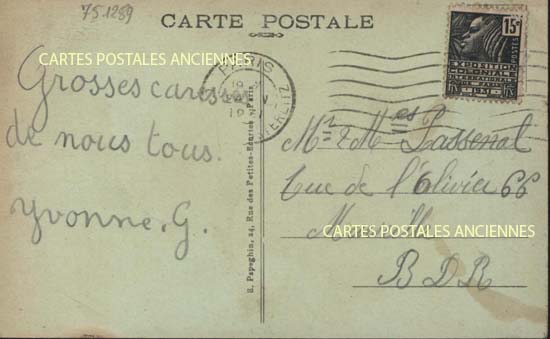 75.1289
CARTE POSTALE
CARTES POSTALES ANCIENNES
Grosses caresses
de nous tous.
Yvonne. G.
PARIS
15c
POSTES
EXPOSITION
COLONIALE
INTERNATIONALE
PARIS 1931
R. Papeghin, 24, Rue des Petites-Ecuries, Paris.
Mr & Mes Passenal
Rue de l'Olivier 66
Marseille
CARTES POSTALES ANCIENNES
B D R